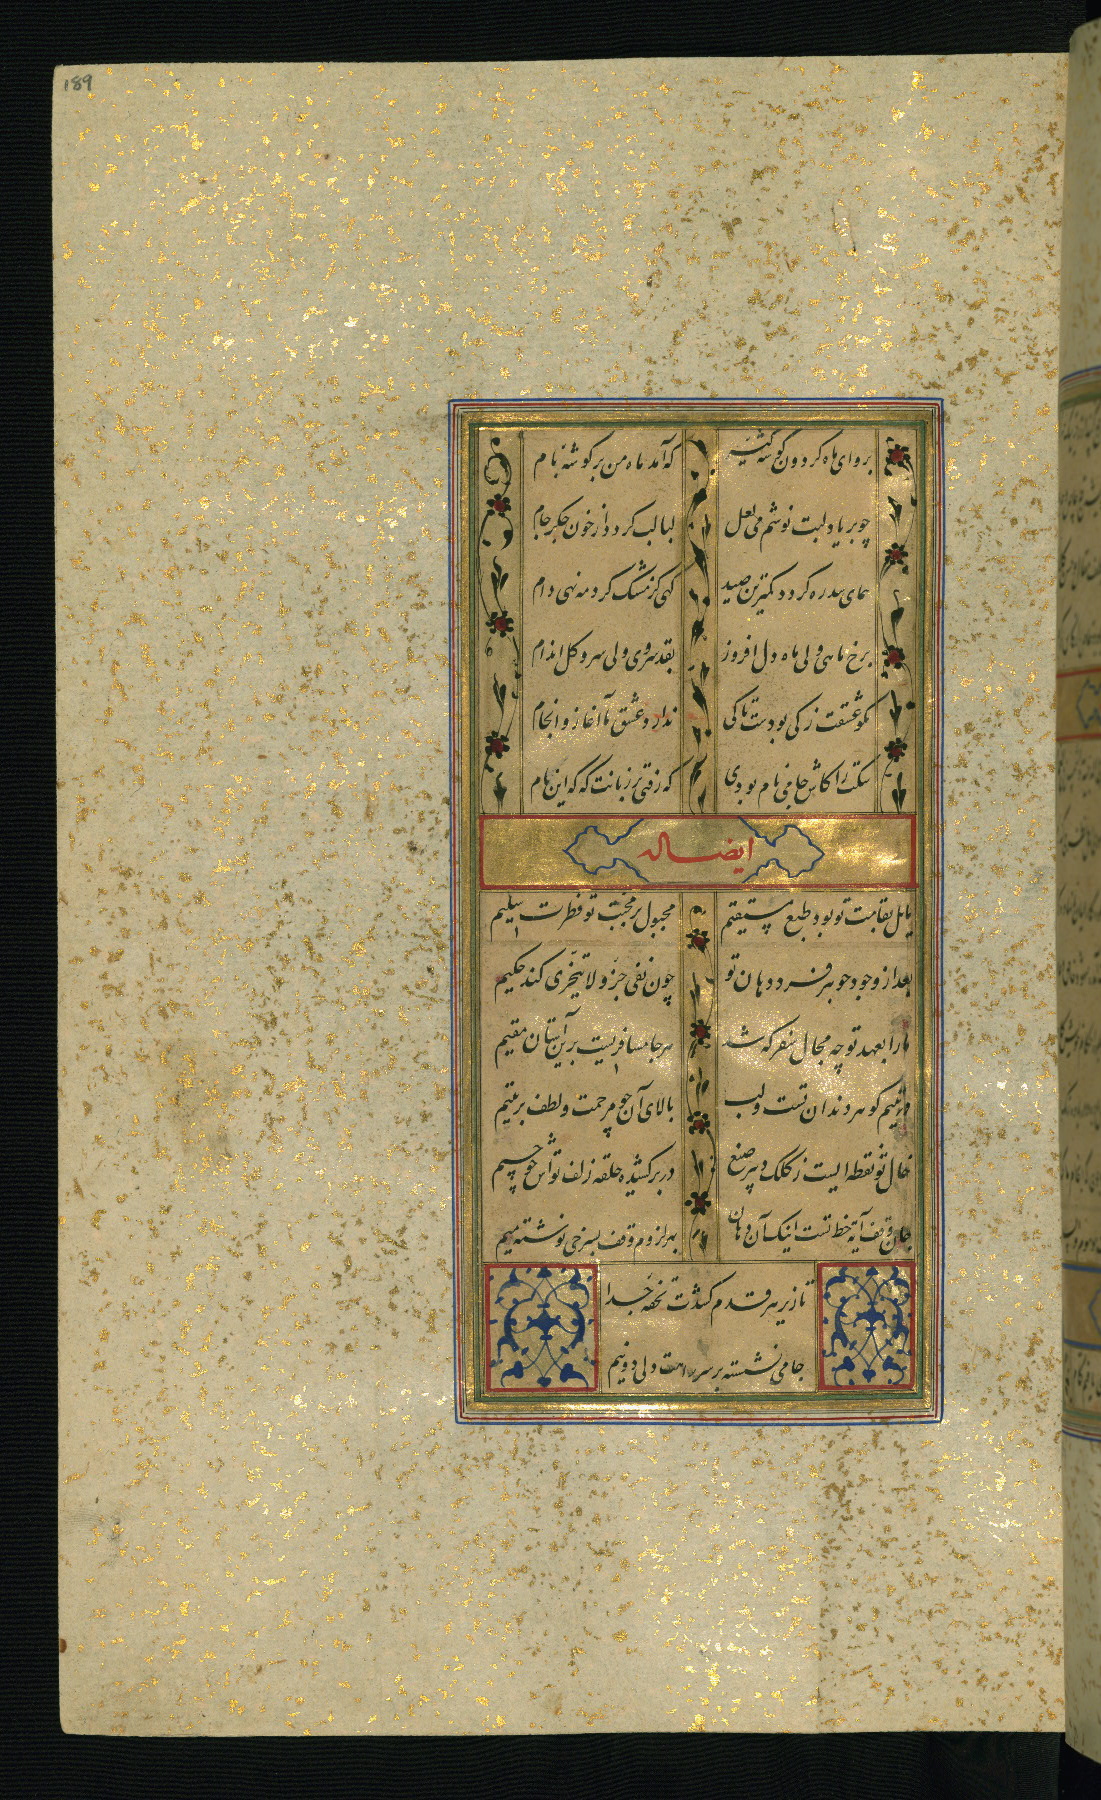 189
برو ای ماه گردون گوشه بنشین که آمد ماه من بر گوشهٔ بام
چو بر یاد لبت نوشم می لعل لبالب گردد از خون جگر جام
همای سدره گردد کمترین صید گهی کز مشک گرد مه نهی دام
برخ ماهی ولی ماه دل افروز بقد سروی ولی سرو گل اندام
مگو عشقت ز کی بودست تا کی ندارد عشق ما آغاز و انجام
سگت را کاش جامی نام بودی که رفتی بر زبانت گه گه این نام
ایضاله
مایل بقامت تو بود طبع مستقیم مجبول بر محبت تو فطرت سلیم
بعد از وجود جوهر فرد دهان تو چون نفی جزو لا یتجزی کند حکیم
ما را بعهد تو چه مجال سفر که شد هر جا مسافریست برین آستان مقیم
در یتیم گوهر دندان تست و لب بالای آن چو مرحمت و لطف بر یتیم
خال تو نقطه ایست ز کلک دبیر صنع در بر کشیده حلقه زلف تواش چو جیم
جان وقف آیه خط تست اینک آن دهان بهر لزوم وقف بسرخی نوشته میم
تا زیر هر قدم کندت تحفه جدا
جامی نشسته بر سر راهت دلی دو نیم